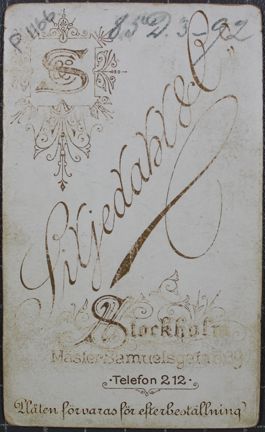 P. 1166
S
Liljedahl & C°
Stockholm
Mäster-Samuelsgatan
Telefon 212
Plåten förvaras för efterbeställning